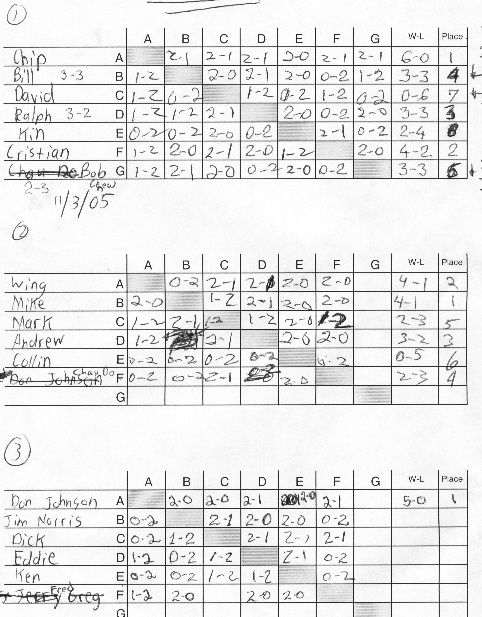 1
A B C D E F G W-L Place
Chip A 2-1 2-1 2-1 2-0 2-1 2-1 6-0 1
Bill 3-3 B 1-2 2-0 2-1 2-0 0-2 1-2 3-3 4
David C 1-2 0-2 1-2 0-2 1-2 0-2 0-6 7
Ralph 3-2 D 1-2 1-2 2-1 2-0 0-2 2-0 3-3 3
Kin E 0-2 0-2 2-0 0-2 2-1 0-2 2-4
Cristian F 1-2 2-0 2-1 2-0 1-2 2-0 4-2 2
Bob G 1-2 2-1 2-0 0-2 2-0 0-2 3-3 5
2-3 Chew
11/3/05
2
A B C D E F G W-L Place
Wing A 0-2 2-1 2-1 2-0 2-0 4-1 2
Mike B 2-0 1-2 2-1 2-0 2-0 4-1 1
Mark C 1-2 2-1 1-2 2-0 1-2 2-3 5
Andrew D 1-2 2-1 2-0 2-0 3-2 3
Collin E 0-2 0-2 0-2 0-2 0-2 0-5 6
Don Johnson Chau Do F 0-2 0-2 2-1 0-2 2-0 2-3 4
G
3
A B C D E F G W-L Place
Don Johnson A 2-0 2-0 2-1 2-0 2-1 5-0 1
Jim Norris B 0-2 2-1 2-0 2-0 0-2
Dick C 0-2 1-2 2-1 2-1 2-1
Eddie D 1-2 0-2 1-2 2-1 0-2
Ken E 0-2 0-2 1-2 1-2 0-2
Jerry Fred Greg F 1-2 2-0 2-0 2-0
G